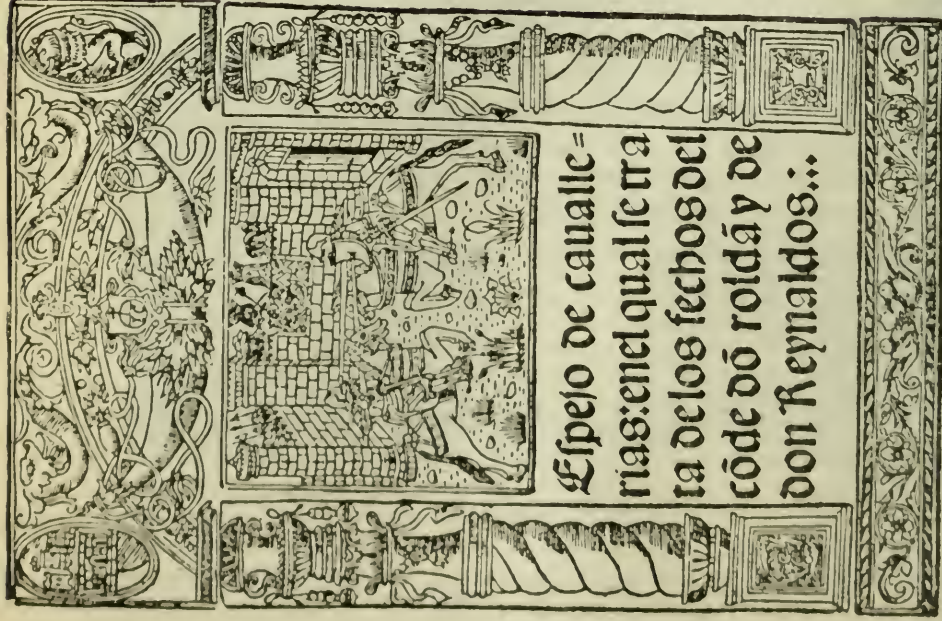 Espejo de caualle=
rias:enel qual se tra
ta delos fechos del
cōde dō roldā y de
don Reynaldos...